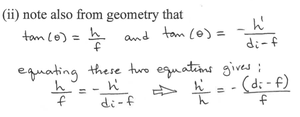 (ii) note also from geometry that
tan(θ) = h/f and tan(θ) = - h'/(di-f)
equating these two equations gives;
h/f = - h'/(di-f) ⇒ h'/h = - (di-f)/f